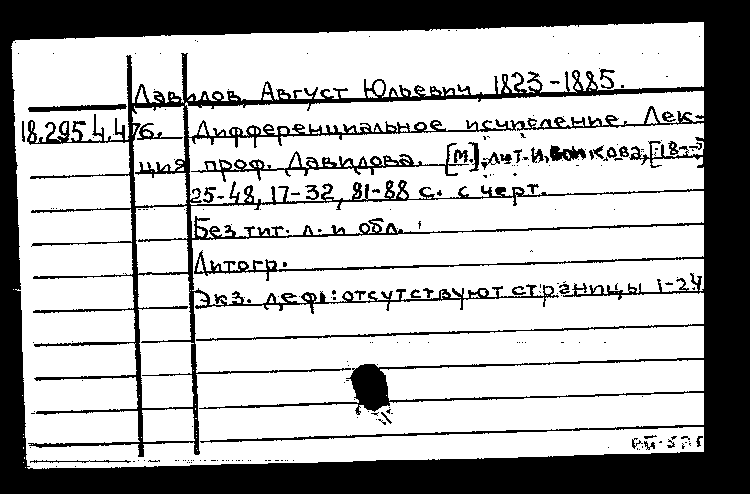 Давидов, Август Юльевич, 1823-1885.
18.295.4.476. Дифференциальное исчисление. Лек-
ция проф. Давидова. [М.], лит. И. Воикова, [18--]
25-48, 17-32, 81-88 с. с черт.
Без тит. л. и обл.
Литогр.
Экз. деф.: отсутствуют страницы 1-24